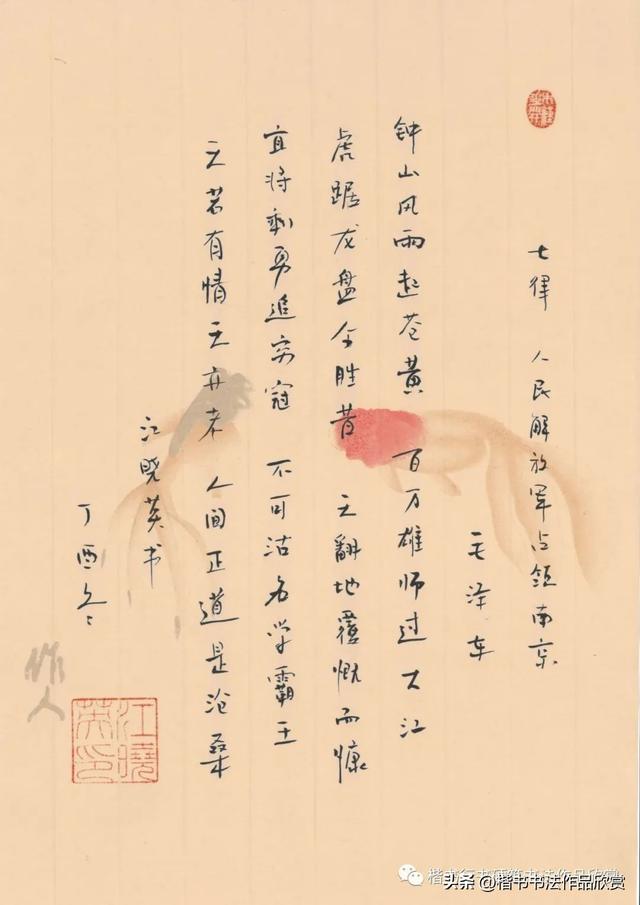 七律 人民解放军占领南京
毛泽东
钟山风雨起苍黄 百万雄师过大江
虎踞龙盘今胜昔 天翻地覆慨而慷
宜将剩勇追穷寇 不可沽名学霸王
天若有情天亦老 人间正道是沧桑
江晓英书
丁酉冬
作人
头条@楷书书法作品欣赏